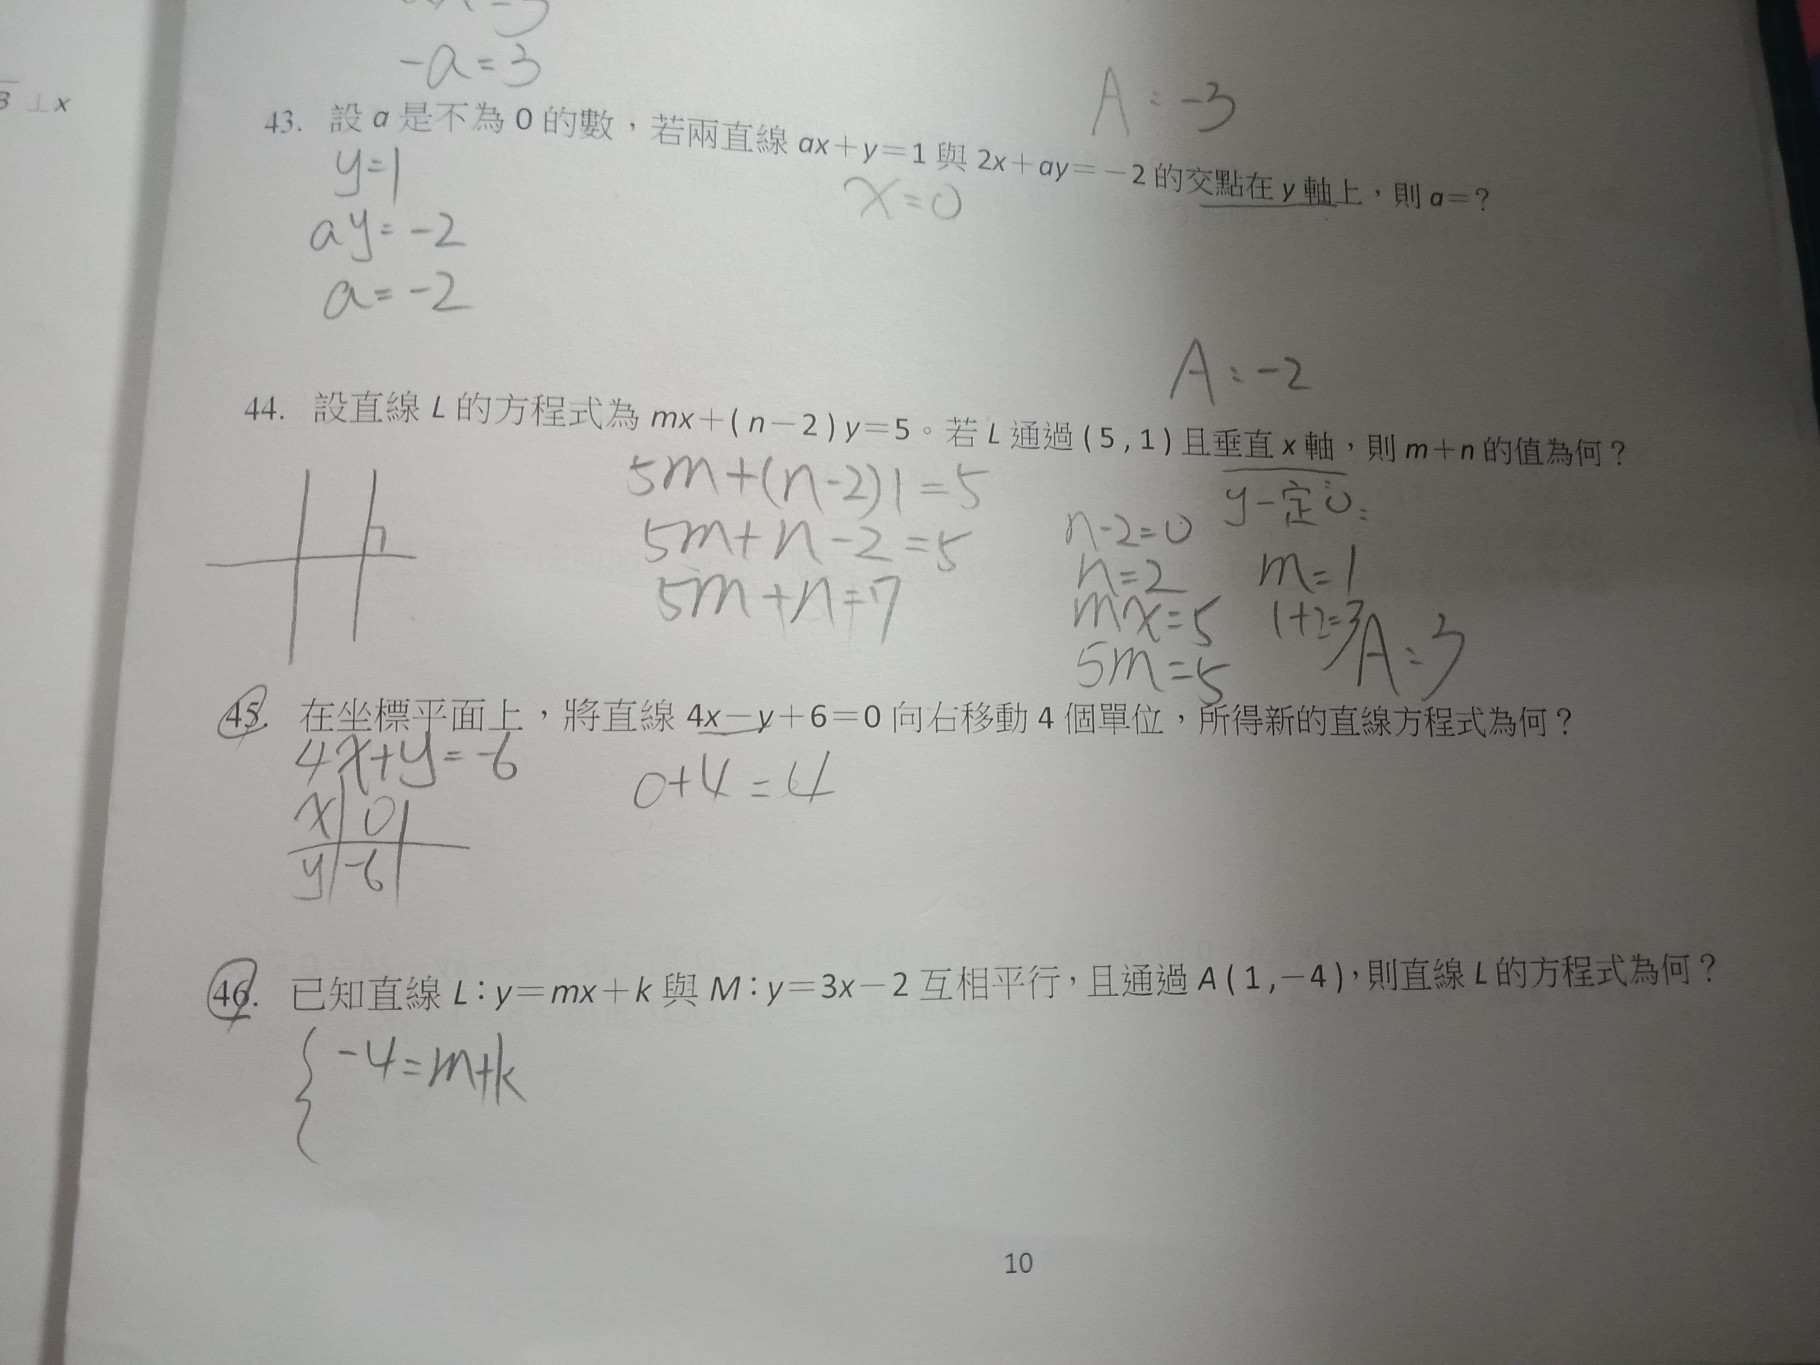 -a=3
A:-3
⊥x
43. 設 a 是不為 0 的數，若兩直線 ax＋y＝1 與 2x＋ay＝－2 的交點在 y 軸上，則 a＝？
y=1
x=0
ay=-2
a=-2
A:-2
44. 設直線 L 的方程式為 mx＋( n－2 ) y＝5。若 L 通過 ( 5 , 1 ) 且垂直 x 軸，則 m＋n 的值為何？
5m+(n-2)1=5
5m+n-2=5
5m+n=7
y一定
n-2=0
n=2
mx=5
5m=5
m=1
1+2=3
A:3
45. 在坐標平面上，將直線 4x－y＋6＝0 向右移動 4 個單位，所得新的直線方程式為何？
4x+y=-6
0+4=4
x 0
y -6
46. 已知直線 L：y＝mx＋k 與 M：y＝3x－2 互相平行，且通過 A ( 1 ,－4 )，則直線 L 的方程式為何？
-4=m+k
10